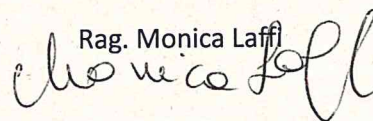 Rag. Monica Laffi
Monica Laffi